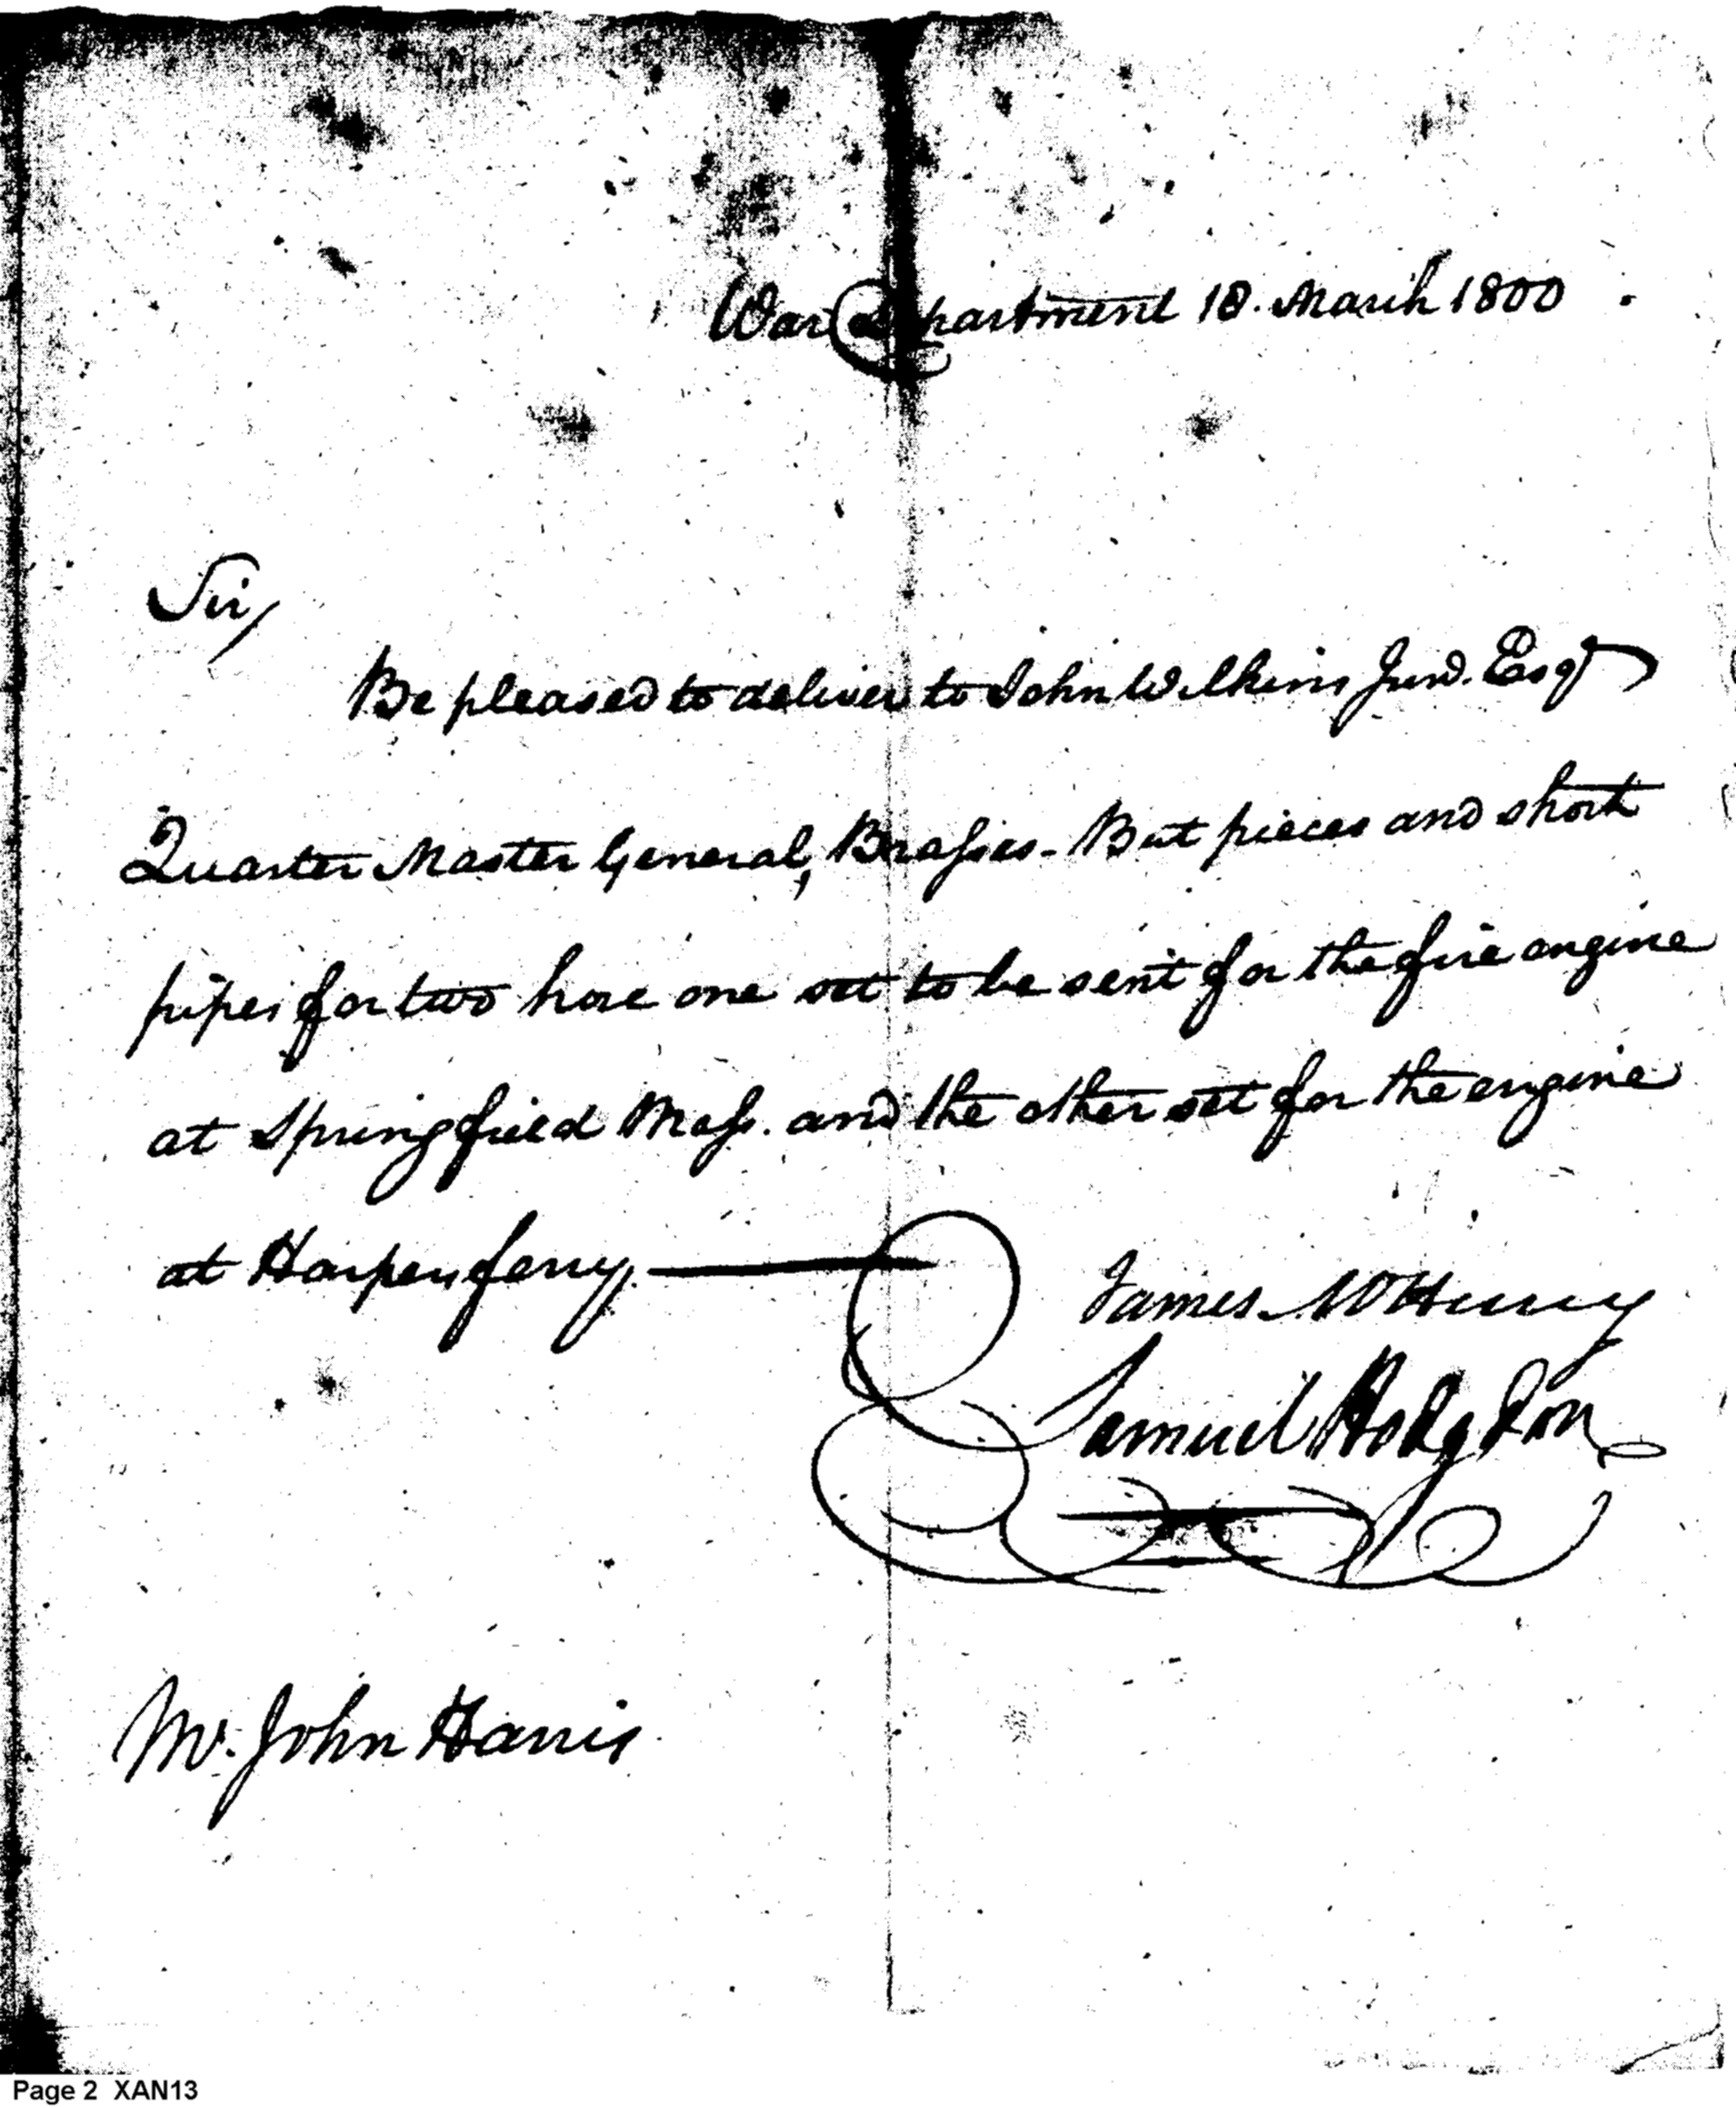 War Department 18. March 1800
Sir,
Be pleased to deliver to John Wilkins Junr. Esqr
Quarter Master General, Brasses - But pieces and short
pipes for two hose one set to be sent for the fire engine
at Springfield Mass. and the other set for the engine
at Harpers ferry.
James McHenry
Samuel Hodgdon
Mr. John Harris
Page 2 XAN13